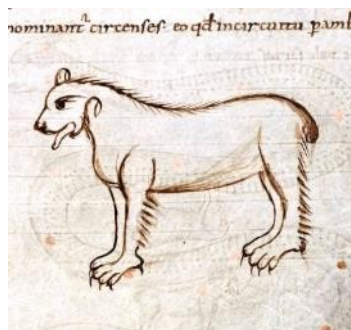 nominant͛ circenses· eo qđ incircuitu ꝑamb